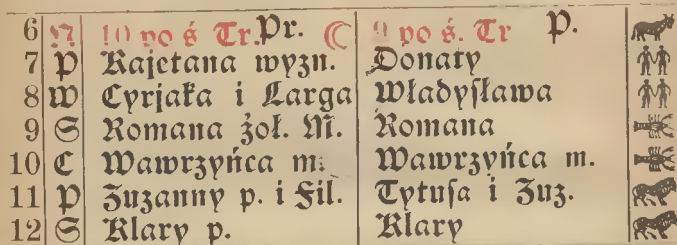 6 N 10 po ś Tr. Pr. ☾ 9 po ś. Tr P.
7 P Kajetana wyzn. Donaty
8 W Cyrjaka i Larga Władysława
9 S Romana żoł. M. Romana
10 C Wawrzyńca m. Wawrzyńca m.
11 P Zuzanny p. i Fil. Tytusa i Zuz.
12 S Klary p. Klary